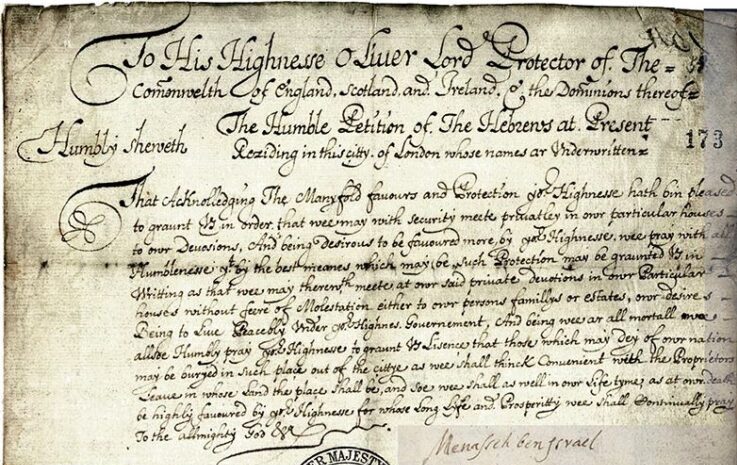 To His Highnesse Oliver Lord Protector of. The=
Comonwelth of England, Scotland, and, Ireland, & the Dominions thereof=
The Humble Petition of. The Hebrews at. Present
Humbly Sheweth
Reziding in this citty. of London whose names ar Underwritten=
173
That Acknolledging The Manyfold favours and Protection yor. Highnesse hath bin pleased
to graunt Us in order, that wee may with security meete privatley in owr particular houses
to owr Devosions, And being desirous to be favoured more, by yor. Highnesse. wee pray with all
Humblenesse yt. by the best meanes which may be Such Protection may be graunted Us in
Writting as that wee may therewth. meete at owr said private, devotions in owr Particular
houses without feere of Molestation either to owr persons famillys or estates, owr desires
Being to Live Peacebly Under yor. Highnes. Governement, And being wee ar all mortall wee
allsoe Humbly pray yor. Highnesse to graunt Us Lisence that those which may dey of owr nation
may be buryed in Such place out of the cittye as wee shall thinck Convenient with the Proprietors
Leave in whose Land the place Shall be, and Soe wee shall as well in owr Life tyme, as at owr death
be highly favoured by yor. Highnesse for whose Long Life and Prosperitty wee shall Continually pray
To the allmighty God &c
ER MAJEST
Menasseh ben Israel